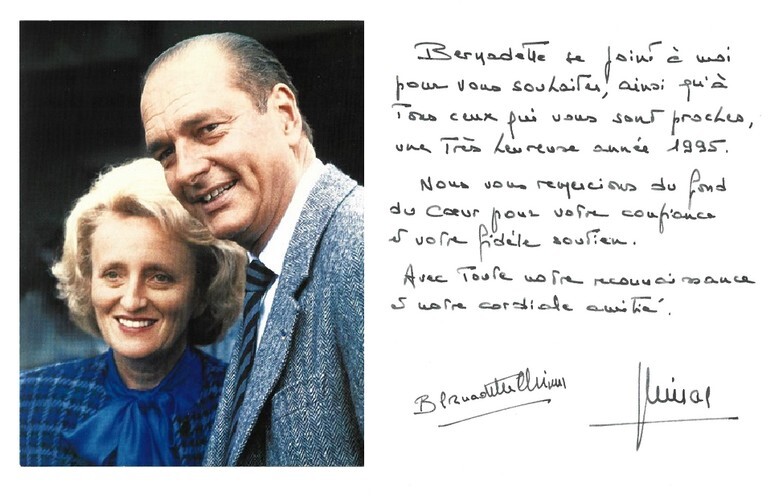 Bernadette se joint à moi
pour vous souhaiter, ainsi qu'à
Tous ceux qui vous sont proches,
une Très heureuse année 1995.
Nous vous remercions du fond
du Cœur pour votre confiance
et votre fidèle soutien.
Avec Toute notre reconnaissance
et notre cordiale amitié.
Bernadette Chirac
J Chirac